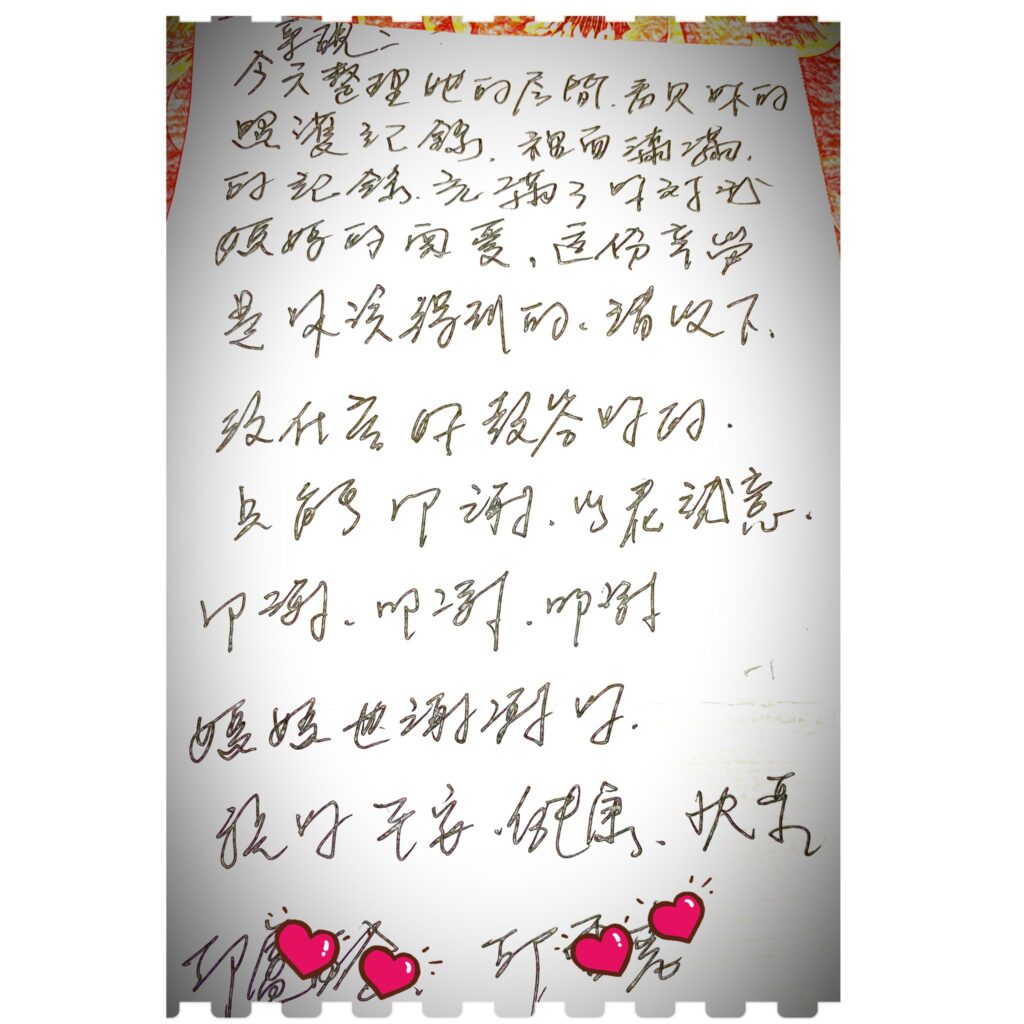 今天整理她的房間.看見妳的
照護記錄.裡面滿滿.
的記錄.充滿了妳對我
媽媽的關愛,這份辛勞
是妳該得到的.請收下.
致什言好教答好的.
只能叩謝.以表誠意.
叩謝.叩謝.叩謝
媽媽也謝謝妳.
祝妳平安.健康.快樂
邱
邱